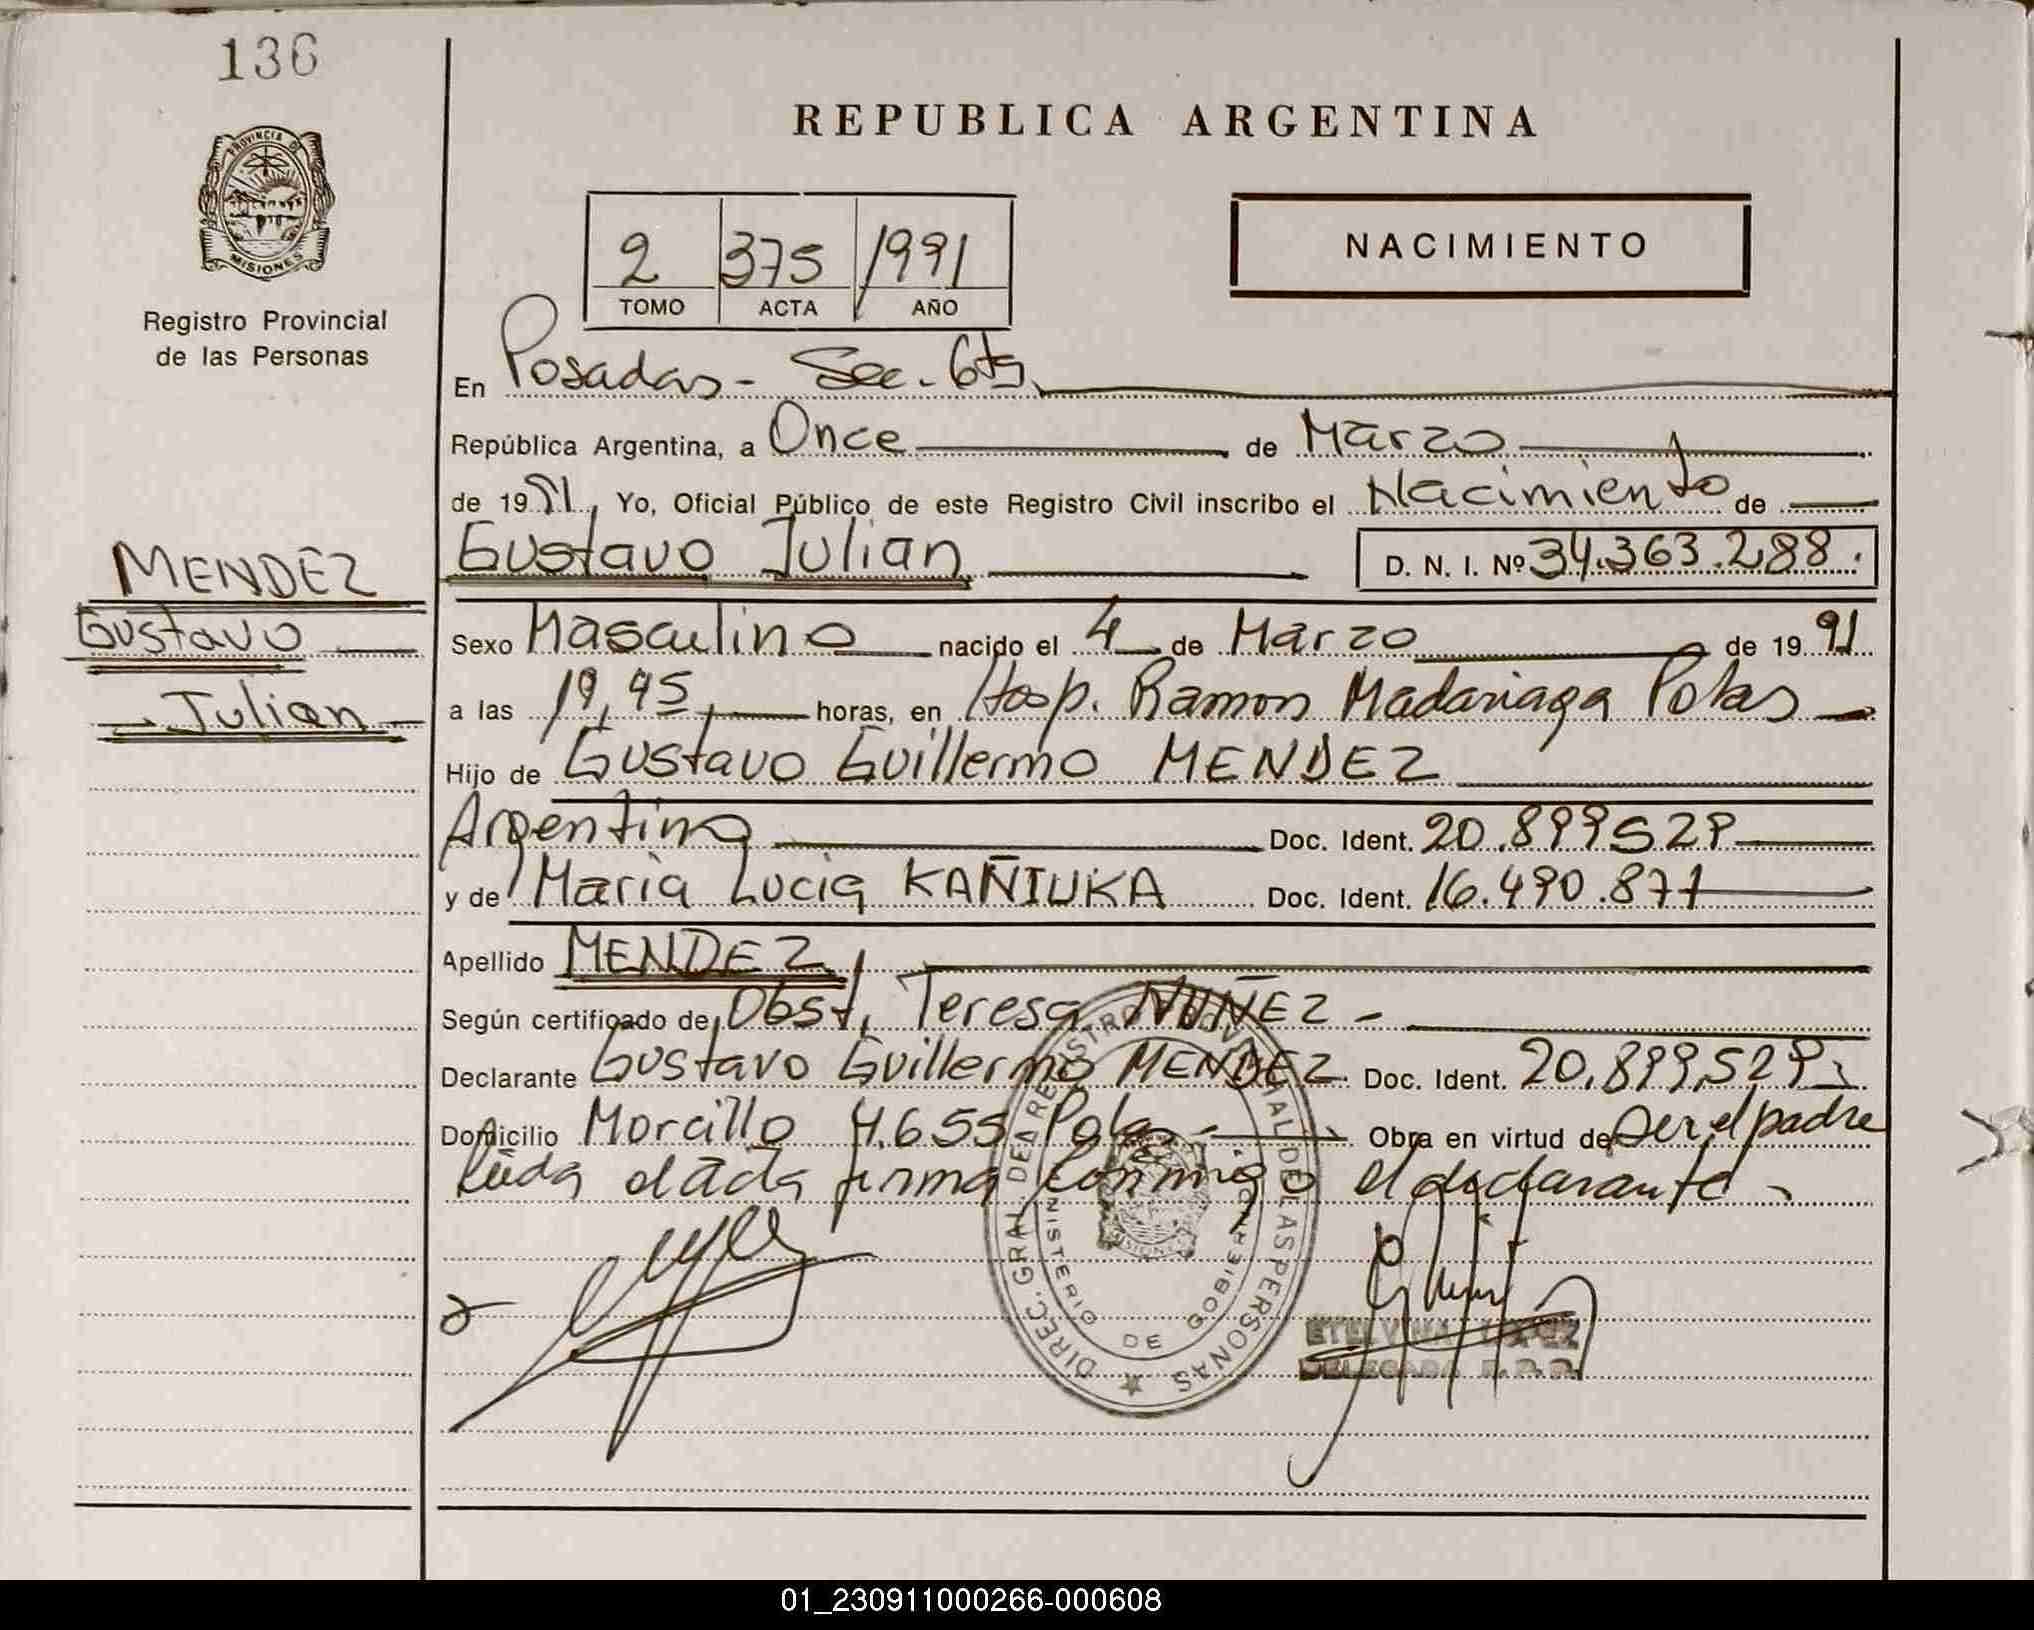 136
REPUBLICA ARGENTINA
PROVINCIA DE
MISIONES
Registro Provincial
de las Personas
2 375 1991
TOMO ACTA AÑO
NACIMIENTO
En Posadas - Sec. 6ta
República Argentina, a Once de Marzo
de 1991, Yo, Oficial Público de este Registro Civil inscribo el Nacimiento de
Gustavo Julian D. N. I. Nº 34.363.288.
MENDEZ
Gustavo
Julian
Sexo Masculino nacido el 4 de Marzo de 1991
a las 19,45 horas, en Hosp. Ramon Madariaga Pdas
Hijo de Gustavo Guillermo MENDEZ
Argentino Doc. Ident. 20.899529
y de Maria Lucia KAÑIUKA Doc. Ident. 16.490.871
Apellido MENDEZ
Según certificado de Obst, Teresa NUÑEZ -
Declarante Gustavo Guillermo MENDEZ Doc. Ident. 20.899,529
Domicilio Morcillo 4.655 Pdas - Obra en virtud de ser el padre
Leida el acta firma conmigo el declarante -
DIREC. GRAL. DE REGISTRO PROVINCIAL DE LAS PERSONAS
MINISTERIO DE GOBIERNO
MISIONES
DELEGADA R.P.P.
01_230911000266-000608